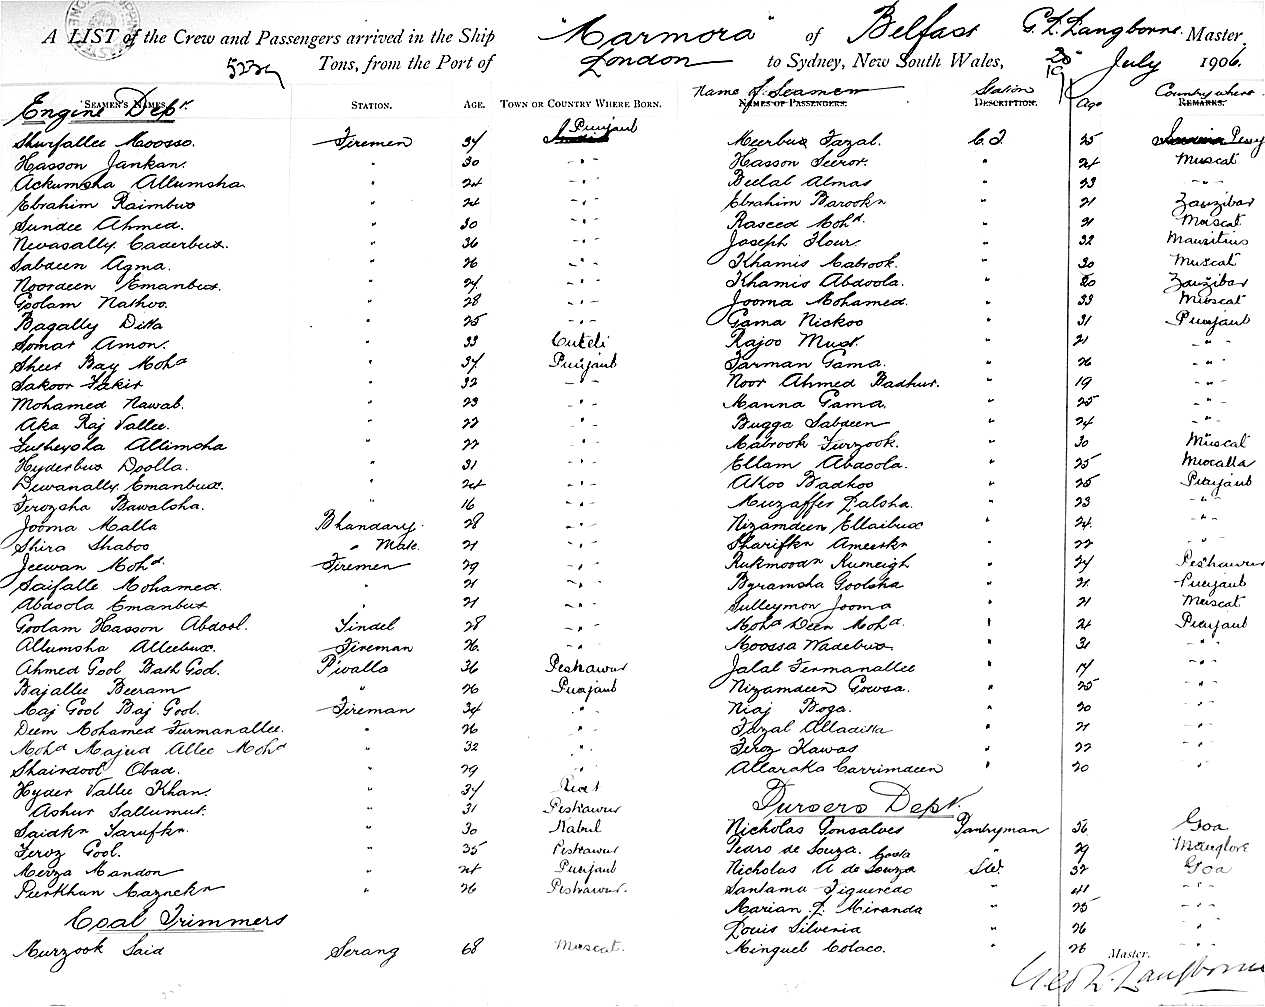 A LIST of the Crew and Passengers arrived in the Ship "Marmora" of Belfast G. L. Langborne Master,
5239 Tons, from the Port of London to Sydney, New South Wales, 19 July 1906.
SEAMEN'S NAMES. STATION. AGE. TOWN OR COUNTRY WHERE BORN.
Engine Dept.
Shurfallee Moosso. Firemen 34 Punjaub
Hasson Jankan. " 30 - " -
Ackumsha Allumsha " 24 - " -
Ebrahim Raimbux " 24 - " -
Sundee Ahmed. " 30 - " -
Nevasally Caderbux. " 36 - " -
Sabdeen Agma. " 26 - " -
Noordeen Emanbux. " 24 - " -
Goolam Nathoo. " 28 - " -
Bagally Ditta " 25 - " -
Somar Amon. " 33
Sheer Bay Mohd " 34 Punjaub
Sakoor Fakir " 32 - " -
Mohamed Nawab. " 23 - " -
Aka Raj Vallee. " 22 - " -
Allimsha " 22 - " -
Hyderbux Doolla. " 31 - " -
Dewanally Emanbux. " 24 - " -
Ferozsha Bawalsha. " 16 - " -
Jooma Malla Bhandary. 28 - " -
Shira Shaboo " Mate. 21 - " -
Jeewan Mohd. Firemen 29 - " -
Saifalle Mohamed. " 21 - " -
Abdoola Emanbux " 21 - " -
Goolam Hasson Abdool. Tindel 28 - " -
Allumsha Alleebux. Fireman 26 - " -
Ahmed Gool Bash God. Pivalla 36 Peshawur
Bajallee Beeram " 26 Punjaub
Maj Gool Baj Gool. Fireman 34 "
Deen Mohamed Furmanallee. " 26 - " -
Mohd Majud Allee Mohd " 32 - " -
Shairdool Obad. " 29 "
Hyder Vallee Khan. " 34
Ashur Sallumut. " 31 Peshawur
Saidkn Sarufkn. " 30 Kabul
Feroz Gool. " 35 Peshawur
Merza Mandon " 24 Punjaub
Peerkhan Maznekn " 26 Peshawur.
Coal Trimmers
Murzook Said Serang 68 Muscat.
Name of Seamen Station Age Country where
NAMES OF PASSENGERS. DESCRIPTION. REMARKS.
Meerbux Fazal. C. T. 25
Hasson Seeror. " 24 Muscat
Beelal Almas " 23 - " -
Ebrahim Barookn " 21 Zanzibar
Raseed Mohd. " 21 Muscat
Joseph Flour " 32 Mauritius
Khamis Mabrook. " 30 Muscat
Khamis Abdoola. " 20 Zanzibar
Jooma Mohamed. " 33 Muscat
Gama Nickoo " 31 Punjaub
Rajoo Must. " 21 - " -
Farman Gama. " 26 - " -
Noor Ahmed Badhur. " 19 - " -
Manna Gama. " 25 - " -
Bugga Sabdeen " 24 - " -
Mabrook Furzook. " 30 Muscat
Ellam Abdoola. " 25 Mucalla
Akoo Badhoo " 25 Punjaub
Muzaffer Lalsha. " 23 - " -
Nizamdeen Ellaibux " 24 - " -
Sharifkn Ameerkn " 22 - " -
Rukmoodn Rumeigh " 24 Peshawur
Byramsha Goolsha " 21 Punjaub
Sulleymon Jooma " 21 Muscat
Mohd Deen Mohd. " 24 Punjaub
Moossa Wadebux " 31 - " -
Jalal Fermanallee " 17 - " -
Nizamdeen Gowsa. " 25 - " -
Niaj Boga. " 20 - " -
Fazal Alladitta " 21 - " -
Feroz Kawas " 22 - " -
Allaraka Carrimdeen " 20 - " -
Pursers Dept.
Nicholas Gonsalves Pantryman 36 Goa
Pedro de Souza. " 29 Manglore
Nicholas A de Souza Std. 32 Goa
Santama Figueredo " 41 - " -
Marian F. Miranda " 25 - " -
Louis Silveria " 26 - " -
Minguel Colaco. " 26 - " -
Master.
Geo L. Langborne